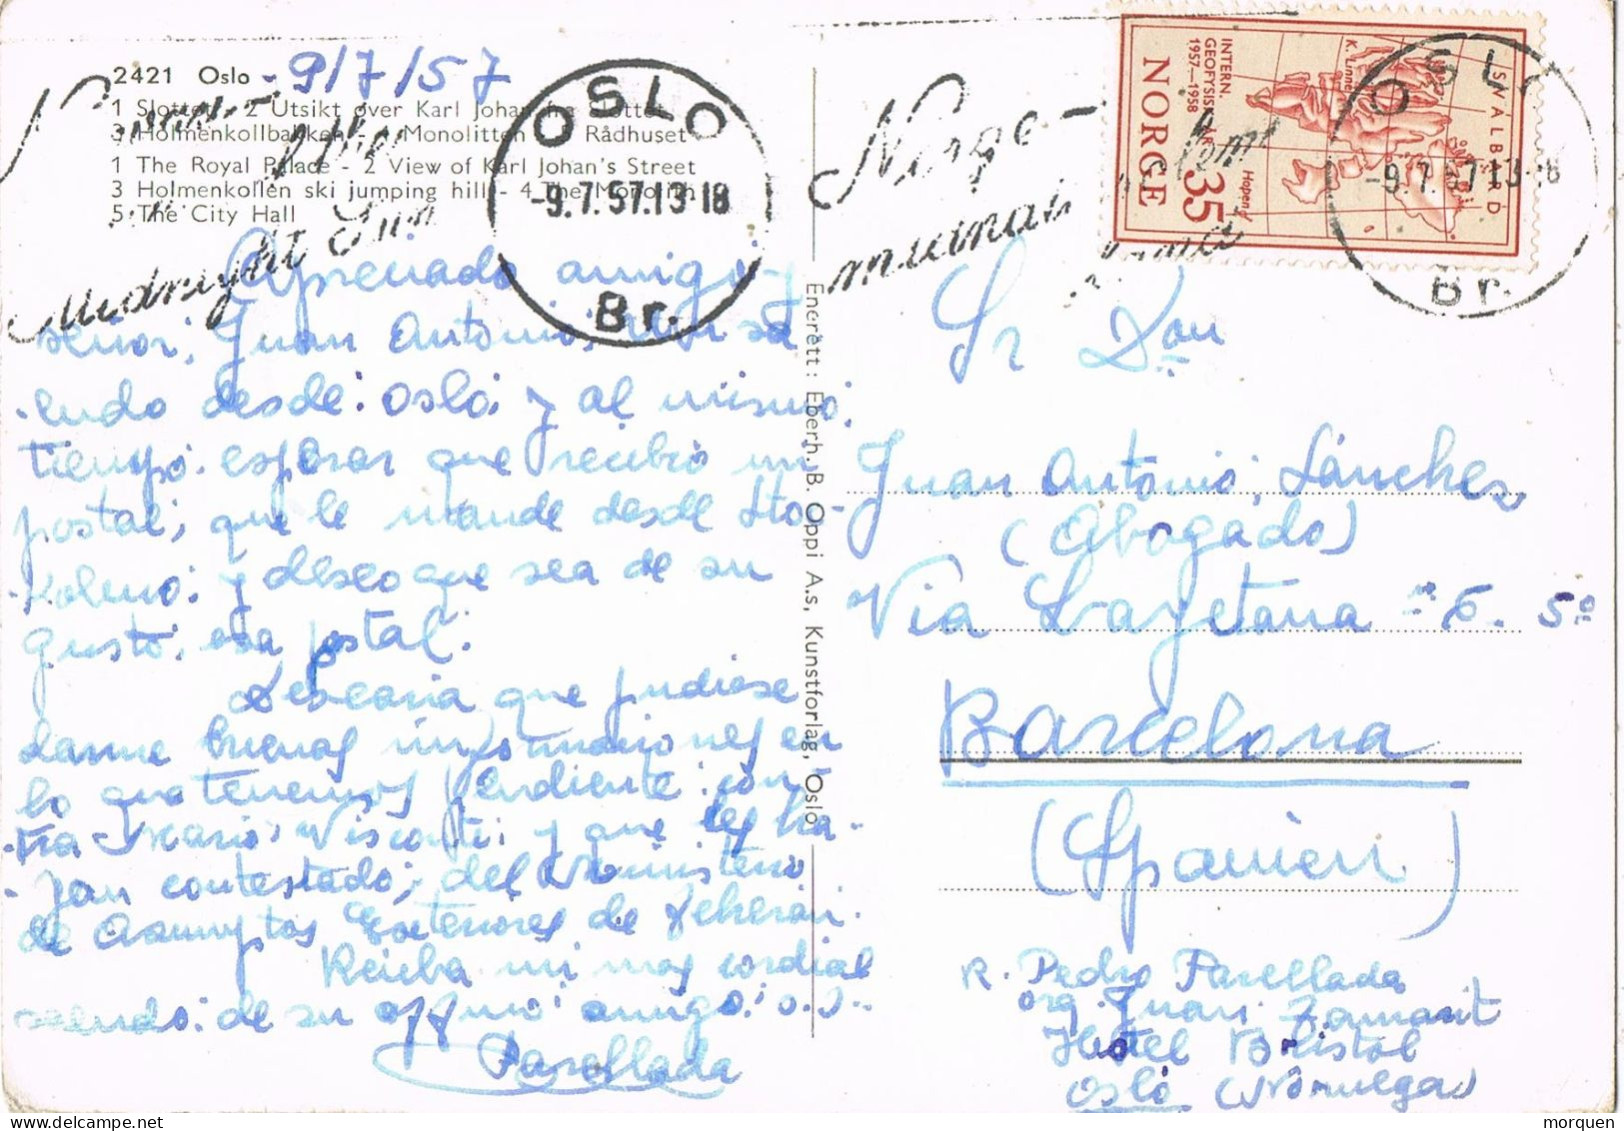 2421 Oslo - 9/7/57
1 Slottet - 2 Utsikt over Karl Johan fra Slottet
3 Holmenkollbakken - 4 Monolitten - 5 Rådhuset
1 The Royal Palace - 2 View of Karl Johan's Street
3 Holmenkollen ski jumping hill - 4 The Monolith
5 The City Hall
Norge-
Midnight Sun
OSLO
-9.7.57.13-18
Br.
Norge-
OSLO
-9.7.57.13-18
Br.
INTERN.
GEOFYSISK ÅR
1957-1958
NORGE
35
SVALBARD
K. Linné
Hopen
Apreciado amigo y
señor; Juan Antonio; un sa
ludo desde: Oslo; y al mismo
tiempo: esperar que recibio mi
postal; que le mande desde Sto-
kolmo; y deseo que sea de su
gusto; esa postal.
Desearia que pudiese
darme buenas informaciones en
lo que tenemos pendiente: con-
tra Mario Visconti; y que les ha-
yan contestado; del Ministerio
de Asuuntos Exteriores de Teheran.
Reciba mi mas cordial
saludo: de su affmo: amigo: s.s.
Parellada
Enerett: Eberh. B. Oppi A.s, Kunstforlag, Oslo
Sr Don
Juan Antonio; Sánchez
(Abogado)
Via Layetana nº 6. 5º
Barcelona
(Spanien)
R. Pedro Parellada
Hotel Bristol
Oslo (Noruega)
morquen